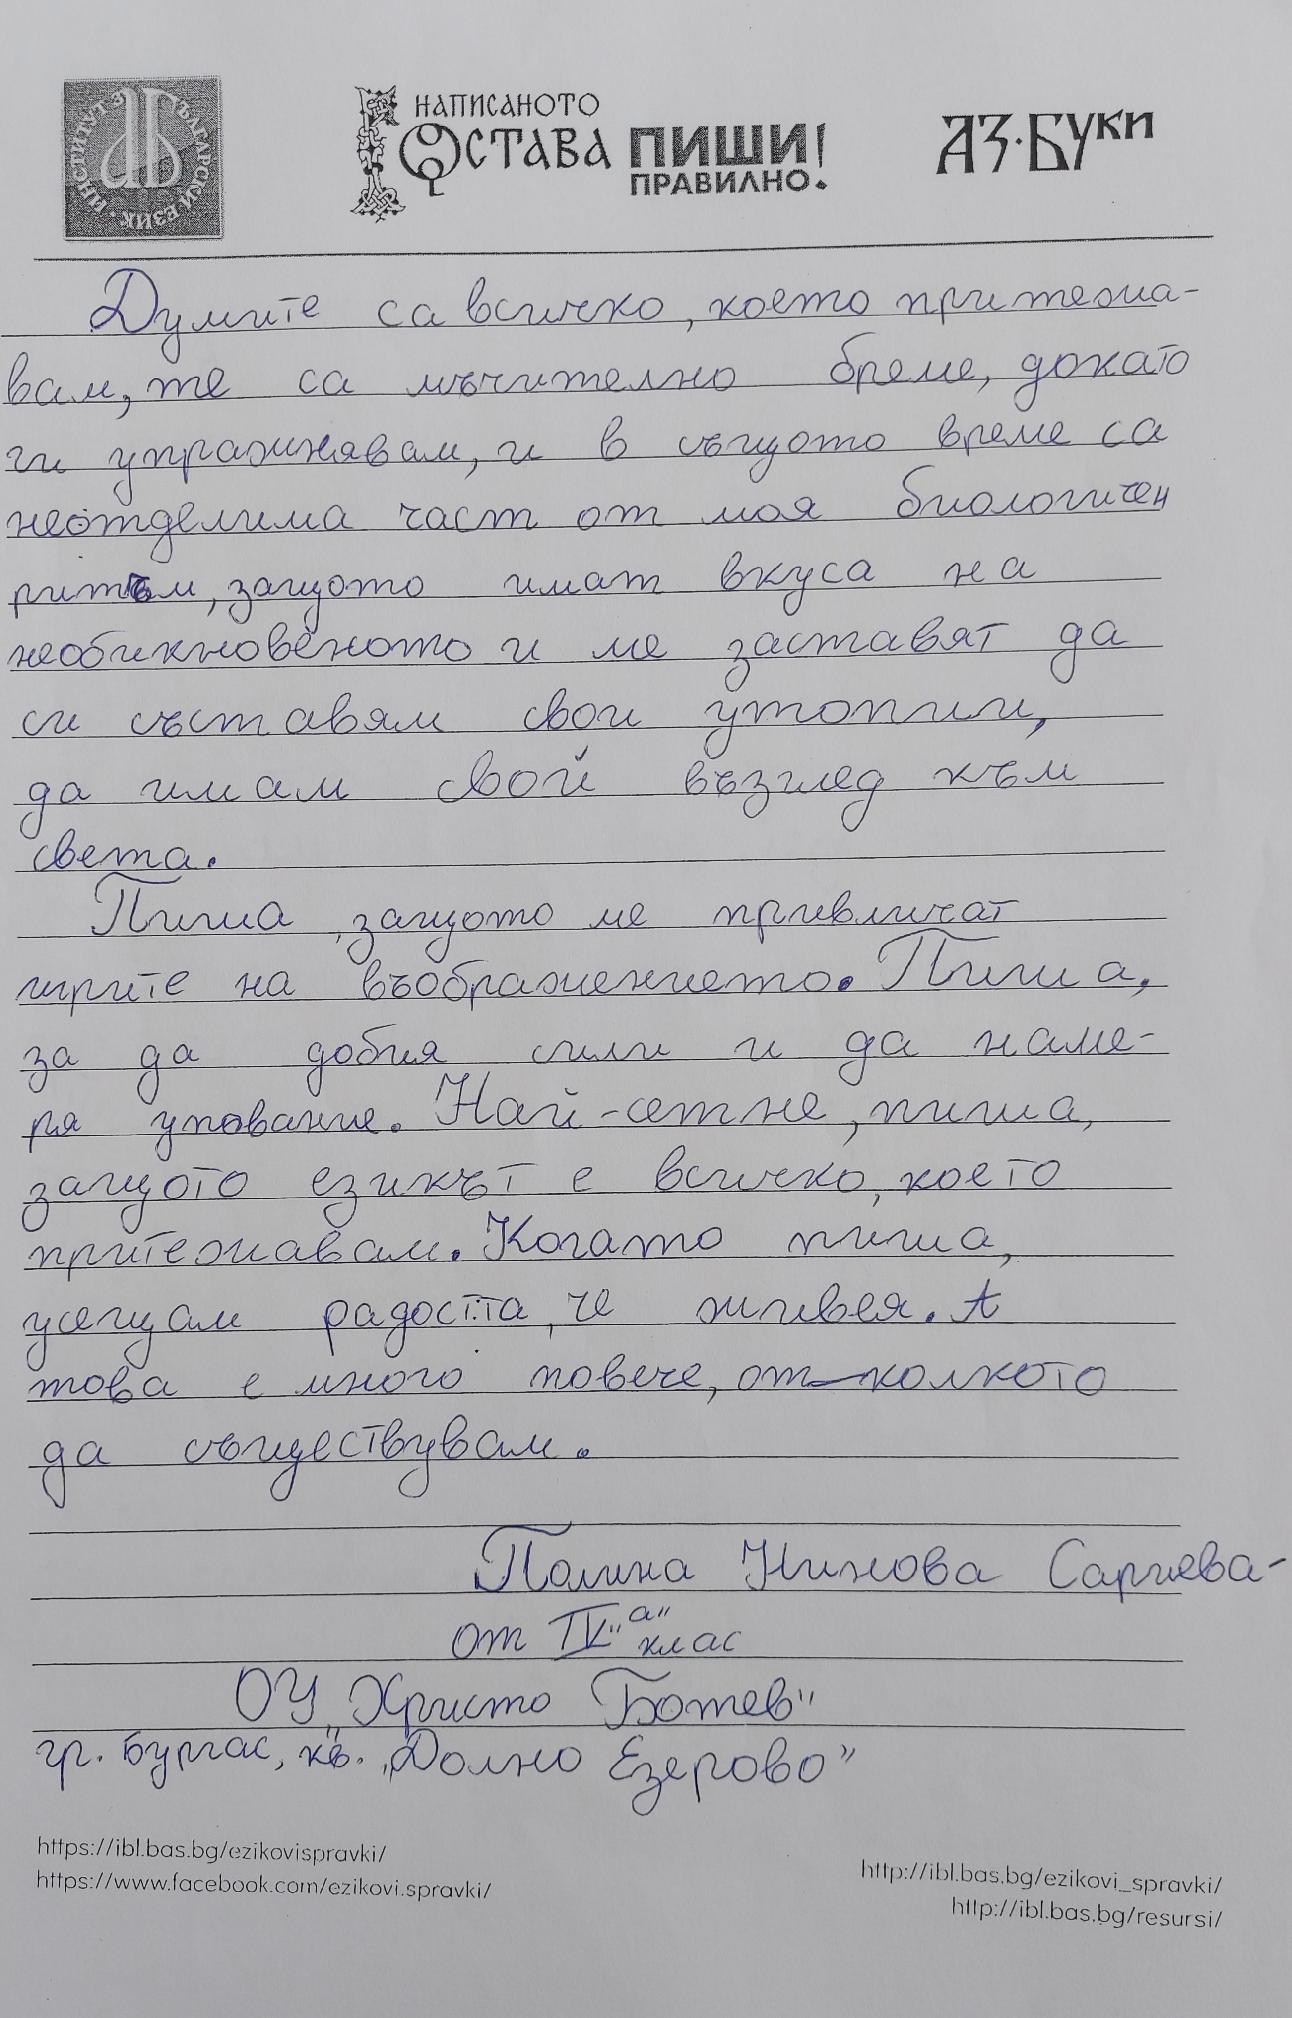 ИНСТИТУТ ЗА БЪЛГАРСКИ ЕЗИК
НАПИСАНОТО
ОСТАВА ПИШИ!
ПРАВИЛНО.
АЗ·БУКИ
Думите са всичко, което притежа-
вам, те са мъчително бреме, докато
ги упражнявам, и в същото време са
неотделима част от моя биологичен
ритъм, защото имат вкуса на
необикновеното и ме заставят да
си съставям свои утопии,
да имам свой възглед към
света.
Пиша, защото ме привличат
игрите на въображението. Пиша,
за да добия сили и да наме-
ря упование. Най-сетне, пиша,
защото езикът е всичко, което
притежавам. Когато пиша,
усещам радостта, че живея. А
това е много повече, отколкото
да съществувам.
Полина Нинова Саргева-
от IV "а" клас
ОУ „Христо Ботев"
гр. Бургас, кв. „Долно Езерово"
https://ibl.bas.bg/ezikovispravki/
https://www.facebook.com/ezikovi.spravki/
http://ibl.bas.bg/ezikovi_spravki/
http://ibl.bas.bg/resursi/